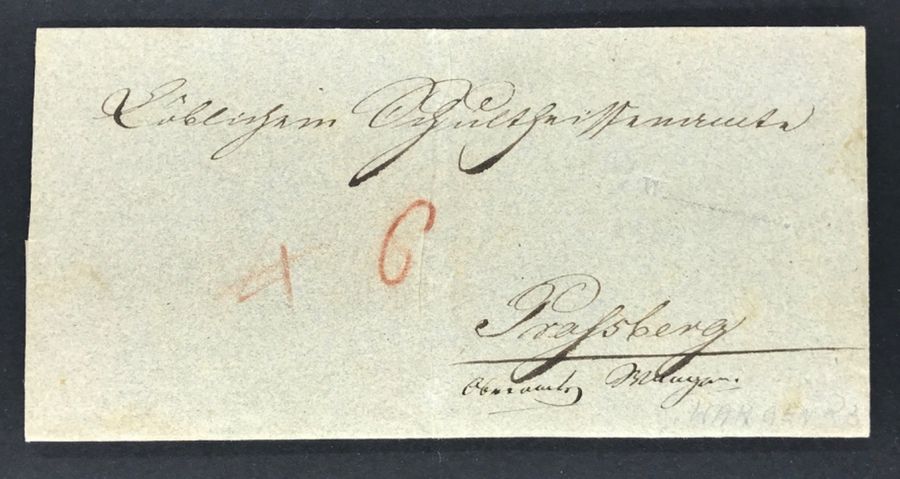 Löblichem Schultheissenamte
6
Prassberg
Oberamts Wangen.
WANGEN